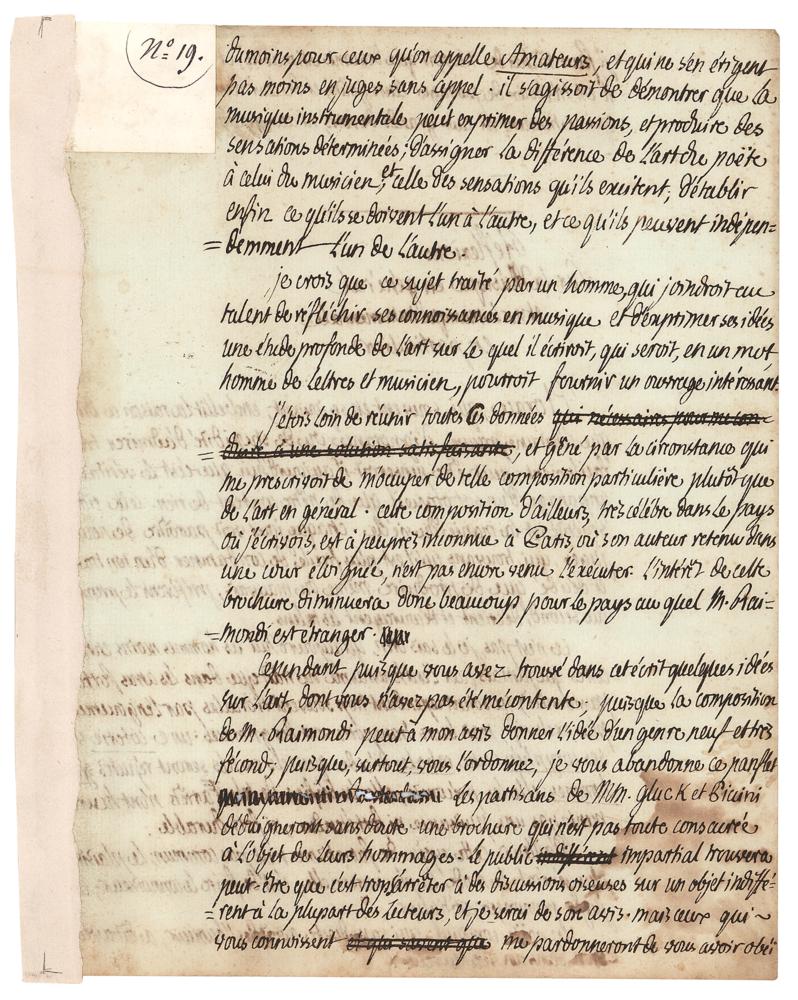 N.o 19.
dumoins pour ceux qu'on appelle Amateurs, et qui ne s'en érigent
pas moins en juges sans appel. il s'agissoit de démontrer que la
musique instrumentale peut exprimer des passions, et produire des
sensations déterminées; d'assigner la différence de l'art du poëte
à celui du musicien, et celle des sensations qu'ils excitent; d'établir
enfin ce qu'ils se doivent l'un à l'autre, et ce qu'ils peuvent indépen=
=demment l'un de l'autre.
je crois que ce sujet traité par un homme, qui joindroit au
talent de réfléchir ses connoissances en musique et d'exprimer ses idées
une étude profonde de l'art sur le quel il écriroit, qui seroit, en un mot
homme de Lettres et musicien, pourroit fournir un ouvrage intéressant.
j'étois loin de réunir toutes ces données qui nécessaires pour me con-
=duire à une solution satisfaisante, et gêné par la circonstance qui
me prescrivoit de m'occuper de telle composition particulière plutôt que
de l'art en général. cette composition d'ailleurs, très célèbre dans le pays
où j'écrivois, est à peuprès inconnue à Paris, où son auteur retenu dans
une cour éloignée, n'est pas encore venu l'exécuter. l'intérêt de cette
brochure diminuera donc beaucoup pour le pays au quel M. Rai=
=mondi est étranger.
Cependant puisque vous avez trouvé dans cet écrit quelques idées
sur l'art, dont vous n'avez pas été mécontente; puisque la composition
de M. Raimondi peut à mon avis donner l'idée d'un genre neuf et très
fécond; puisque, surtout, vous l'ordonnez, je vous abandonne ce panflet
Les partisans de MM. Gluck et Piccini
dédaigneront sans doute une brochure qui n'est pas toute consacrée
à l'objet de leurs hommages. le public indifférent impartial trouvera
peut-être que c'est trop s'arrêter à des discussions oiseuses sur un objet indiffé=
=rent à la plupart des Lecteurs, et je serai de son avis. mais ceux qui
vous connoissent et qui savent que me pardonneront de vous avoir obéi